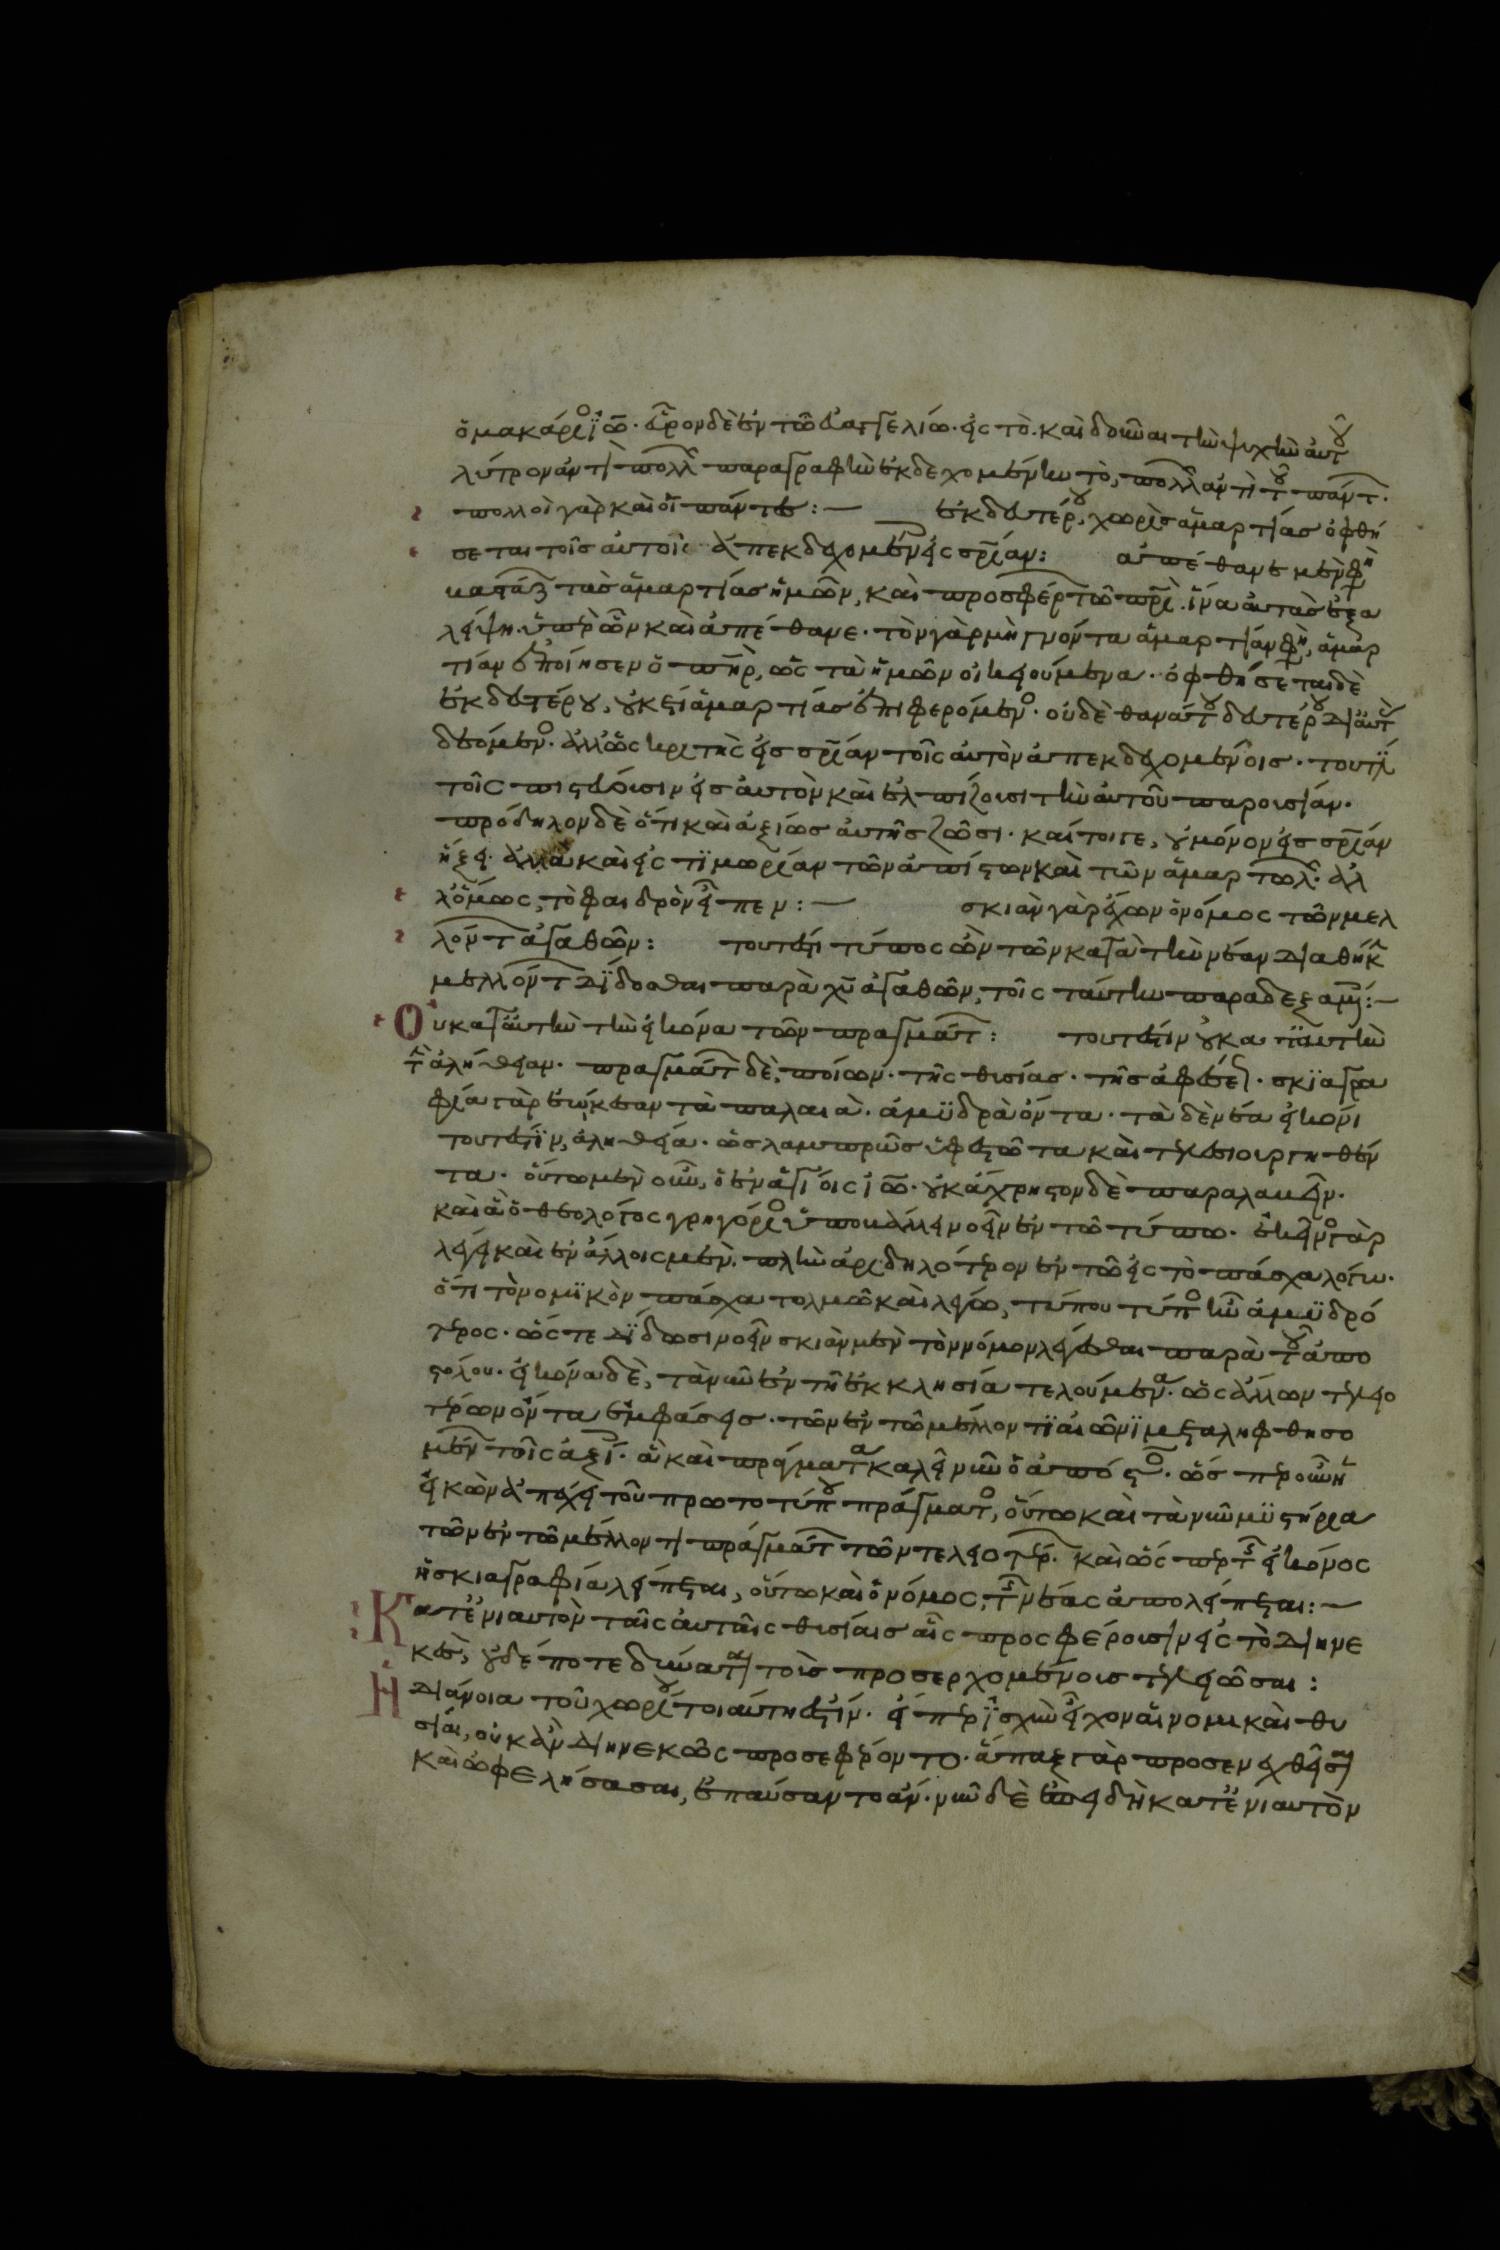 ὁ μακάριος ἰω. εὗρον δὲ ἐν τῶ εὐαγγελίω. εἰς τὸ. καὶ δοῦναι τὴν ψυχὴν αὐτοῦ
λύτρον ἀντὶ πολλῶν παραγραφὴν ἐκδεχομένην τὸ, πολλῶν ἀντὶ τοῦ πάντων.
πολλοὶ γὰρ καὶ οἱ πάντες : — ἐκ δευτέρου, χωρὶς ἁμαρτίας ὀφθή
σεται τοῖς αὐτὸν ἀπεκδεχομένοις εἰς σρίαν : ἀπέθανε μὲν φησὶ
κατάξας τὰς ἁμαρτίας ἡμῶν, καὶ προσφέρων τῶ πρὶ. ἵνα αὐτὰς ἐξα
λείψη. ὑπὲρ ὧν καὶ ἀπέθανε. τὸν γὰρ μὴ γνόντα ἁμαρτίαν φησὶ, ἁμαρ
τίαν ἐποίησεν ὁ πὴρ, ὡς τὰ ἡμῶν οἰκειούμενα. ὀφθήσεται δὲ
ἐκ δευτέρου, οὐκ ἔτι ἁμαρτίας ἐπιφερόμενος. οὐδὲ θανάτου δευτέρου δι αὐτὰς
δεόμενος. ἀλλ ὡς κριτὴς εἰς σρίαν τοῖς αὐτὸν ἀπεκδεχομένοις. τουτέστι
τοῖς πιστεύουσιν εἰς αὐτὸν καὶ ἐλπίζουσι τὴν αὐτοῦ παρουσίαν.
πρόδηλον δὲ ὅτι καὶ ἀξίως αὐτῆς ζῶσι. καίτοιγε, οὐ μόνον εἰς σρίαν
ἥξει. ἀλλὰ καὶ εἰς τιμωρίαν τῶν ἀπίστων καὶ τῶν ἁμαρτωλῶν. ἀλ
λ ὅμως, τὸ φαιδρὸν εἶπεν : — σκιὰν γὰρ ἔχων ὁ νόμος τῶν μελ
λόντων ἀγαθῶν : τουτέστι τύπος ὢν τῶν κατὰ τὴν νέαν διαθήκην
μελλόντων δίδοσθαι παρὰ χυ ἀγαθῶν, τοῖς ταύτην παραδεξαμένοις : —
Οὐκ αὐτὴν τὴν εἰκόνα τῶν πραγμάτων : τουτέστιν οὐκ αὐτὴν
τὴν ἀλήθειαν. πραγμάτων δὲ, ποίων. τῆς θυσίας. τῆς ἀφέσεως. σκιαγρα
φία γὰρ ἐώκεσαν τὰ παλαιὰ. ἀμυδρὰ ὄντα. τὰ δὲ νέα εἰκόνι
τουτέστιν, ἀληθεία. ὡς λαμπρῶς ὑφεστῶτα καὶ τελεσιουργηθέν
τα. οὕτω μὲν οὖν, ὁ ἐν ἁγίοις ἰω. οὐκ ἄχρηστον δὲ παραλαβεῖν.
καὶ ἃ ὁ θεολόγος γρηγόριος ὑποβάλλει νοεῖν ἐν τῶ τύπω. ἐκεῖνος γὰρ
λέγει καὶ ἐν ἄλλοις μὲν. πλὴν ἀριδηλότερον ἐν τῶ εἰς τὸ πάσχα λόγω.
ὅτι τὸ νομικὸν πάσχα τολμῶ καὶ λέγω, τύπου τύπος ἦν ἀμυδρό
τερος. ὥστε δίδωσι νοεῖν σκιὰν μὲν τὸν νόμον λέγεσθαι παρὰ τοῦ ἀπο
στόλου. εἰκόνα δὲ, τὰ νῦν ἐν τῆ ἐκκλησία τελούμενα. ὡς ἄλλων τελειο
τέρων ὄντα ἐμφάσεις. τῶν ἐν τῶ μέλλοντι αἰῶνι μεταληφθησο
μένων τοῖς ἀξίοις. ἃ καὶ πράγματα καλεῖ νῦν ὁ ἀπόστολος. ὥσπερ οὖν ἡ
εἰκὼν ἀπέχει τοῦ πρωτοτύπου πράγματος, οὕτω καὶ τὰ νῦν μυστήρια
τῶν ἐν τῶ μέλλοντι πραγμάτων τῶν τελειοτέρων. καὶ ὡς πρὸ τῆς εἰκόνος
ἡ σκιαγραφία λείπεται, οὕτω καὶ ὁ νόμος, τῆς νέας ἀπολείπεται : —
Κατ ἐνιαυτὸν ταῖς αὐταῖς θυσίαις αἷς προσφέρουσιν εἰς τὸ διηνε
κὲς, οὐδέποτε δύναται τοὺς προσερχομένους τελειῶσαι :
Ἡ διάνοια τοῦ χωρίου τοιαύτη ἐστίν. εἴπερ ἰσχὺν εἶχον αἱ νομικαὶ θυ
σίαι, οὐκ ἂν διηνεκῶς προσεφέροντο. ἅπαξ γὰρ προσενεχθεῖσαι
καὶ ὠφελήσασαι, ἐπαύσαντο ἄν. νῦν δὲ ἐπειδὴ κατ ἐνιαυτὸν